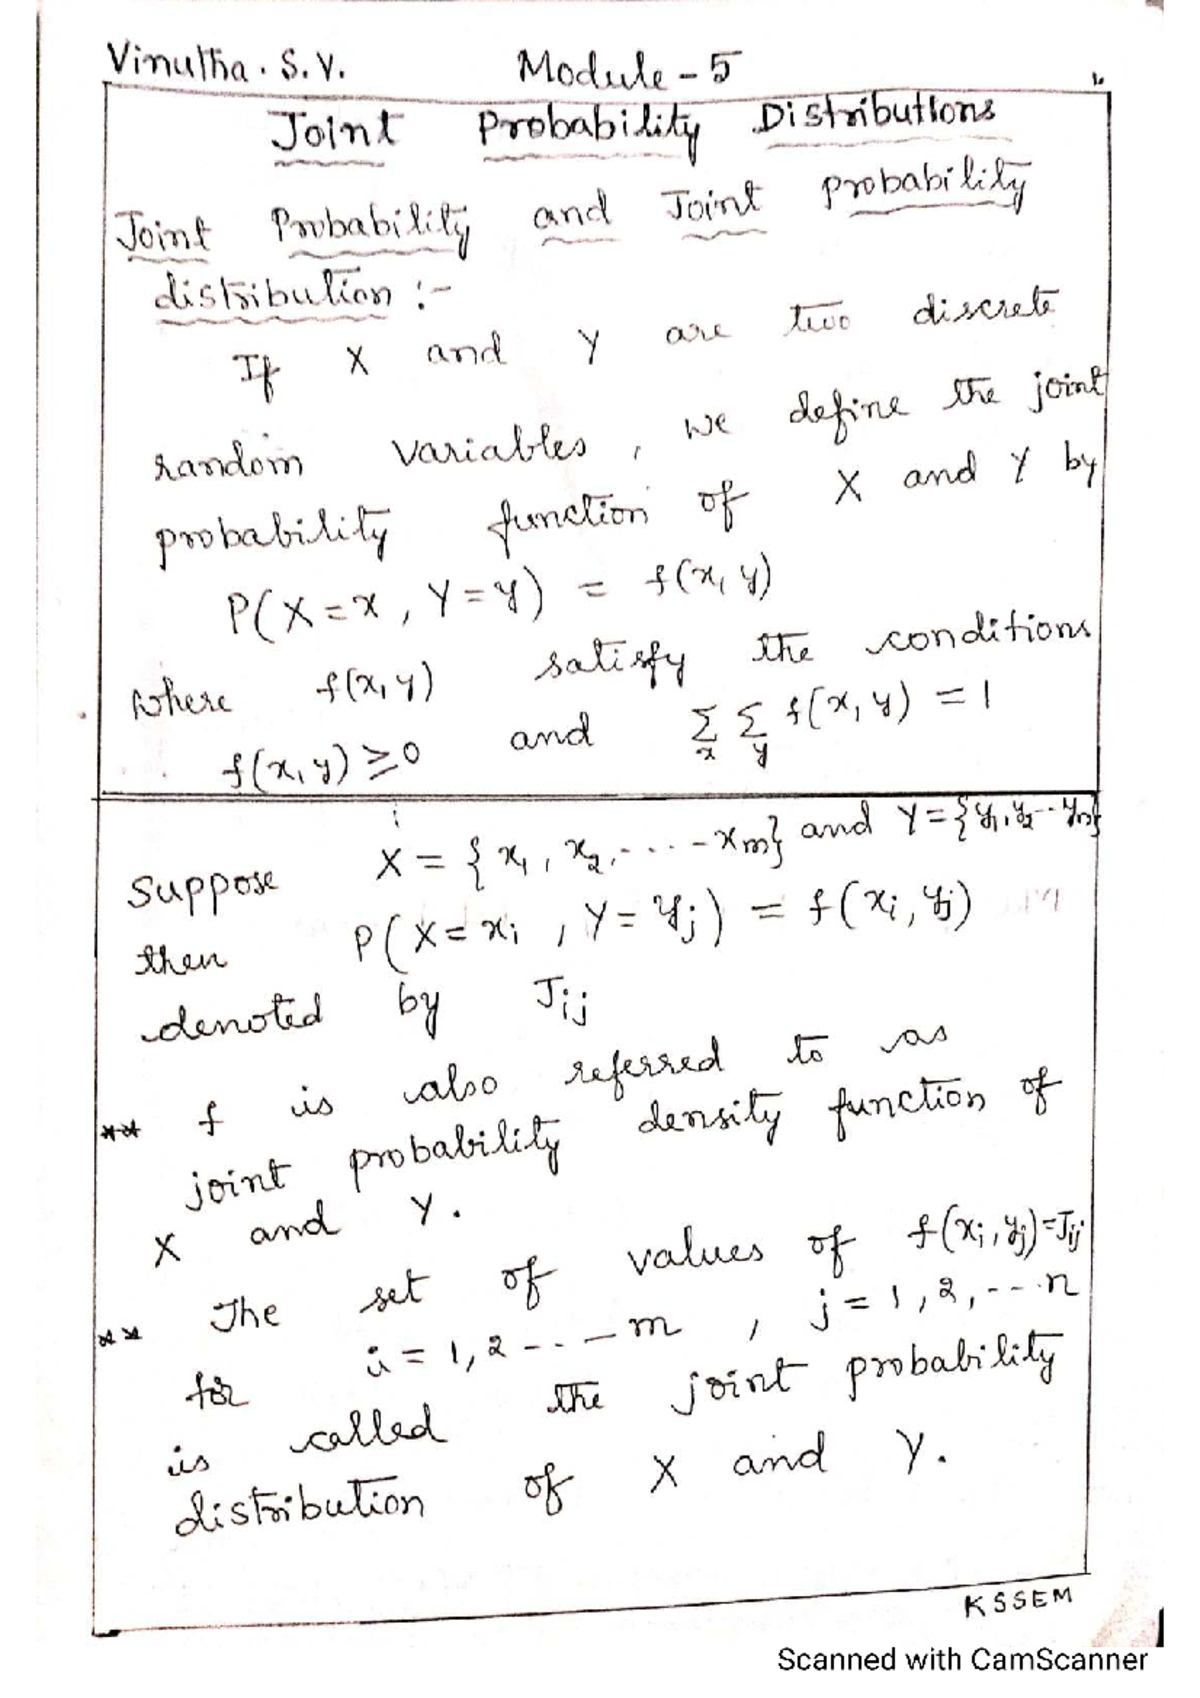 Vinutha. S.V. Module - 5
Joint Probability Distributions
Joint Probability and Joint probability
distribution :-
If X and Y are two discrete
random variables, we define the joint
probability function of X and Y by
P(X=x, Y=y) = f(x, y)
where f(x,y) satisfy the conditions
f(x,y) ≥ 0 and Σx Σy f(x, y) = 1
Suppose X = {x1, x2, ---- xm} and Y = {y1, y2 -- yn}
then P(X=xi, Y=yj) = f(xi, yj)
denoted by Jij
** f is also referred to as
joint probability density function of
X and Y.
** The set of values of f(xi, yj)=Jij
for i = 1,2 --- m, j = 1,2,--- n
is called the joint probability
distribution of X and Y.
KSSEM
Scanned with CamScanner